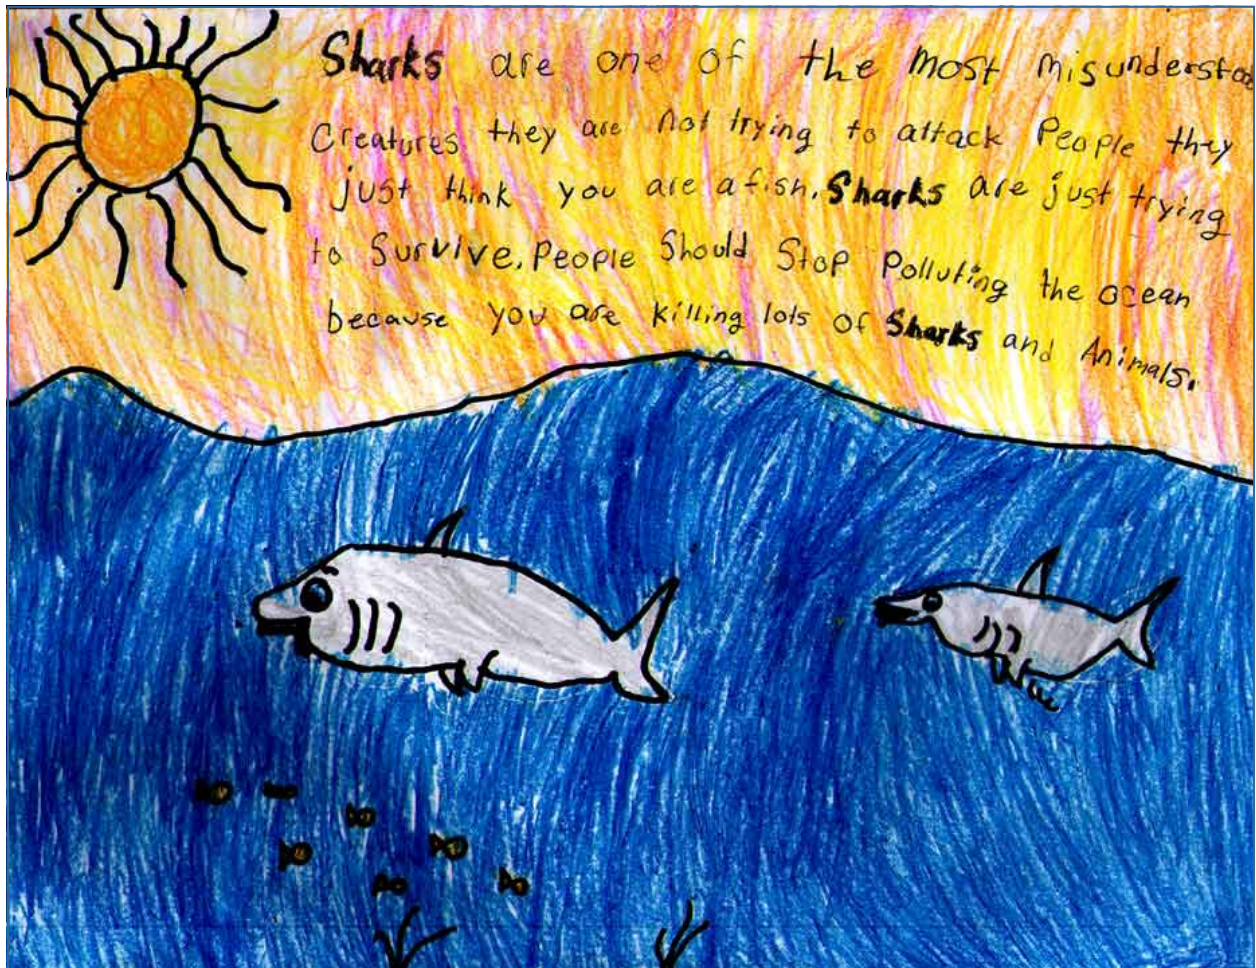 Sharks are one of the most misunderstoo
Creatures they are not trying to attack People they
just think you are a fish. Sharks are just trying
to Survive. People Should Stop Polluting the ocean
because you are killing lots of Sharks and Animals.